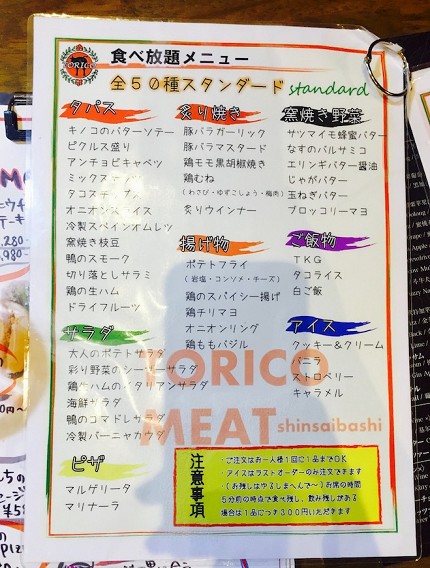 TORICO
食べ放題メニュー
全50種スタンダード standard
タパス
キノコのバターソテー
ピクルス盛り
アンチョビキャベツ
ミックスナッツ
タコスチップス
オニオンスライス
冷製スペインオムレツ
窯焼き枝豆
鴨のスモーク
切り落としサラミ
鶏の生ハム
ドライフルーツ
サラダ
大人のポテトサラダ
彩り野菜のシーザーサラダ
鶏生ハムのイタリアンサラダ
海鮮サラダ
鴨のコマドレサラダ
冷製バーニャカウダ
ピザ
マルゲリータ
マリナーラ
炙り焼き
豚バラガーリック
豚バラマスタード
鶏モモ黒胡椒焼き
鶏むね
(わさび・ゆずこしょう・梅肉)
炙りウインナー
揚げ物
ポテトフライ
(岩塩・コンソメ・チーズ)
鶏のスパイシー揚げ
鶏チリマヨ
オニオンリング
鶏ももバジル
窯焼き野菜
サツマイモ蜂蜜バター
なすのバルサミコ
エリンギバター醤油
じゃがバター
玉ねぎバター
ブロッコリーマヨ
ご飯物
TKG
タコライス
白ご飯
アイス
クッキー&クリーム
バニラ
ストロベリー
キャラメル
TORICO
MEAT shinsaibashi
注意事項
・ご注文はお一人様1回に1品までOK
・アイスはラストオーダーのみ注文できます
(お残しはゆるしまへんで〜)お席の時間
5分前の時点で食べ残し、飲み残しがある
場合は1品につき300円いただきます